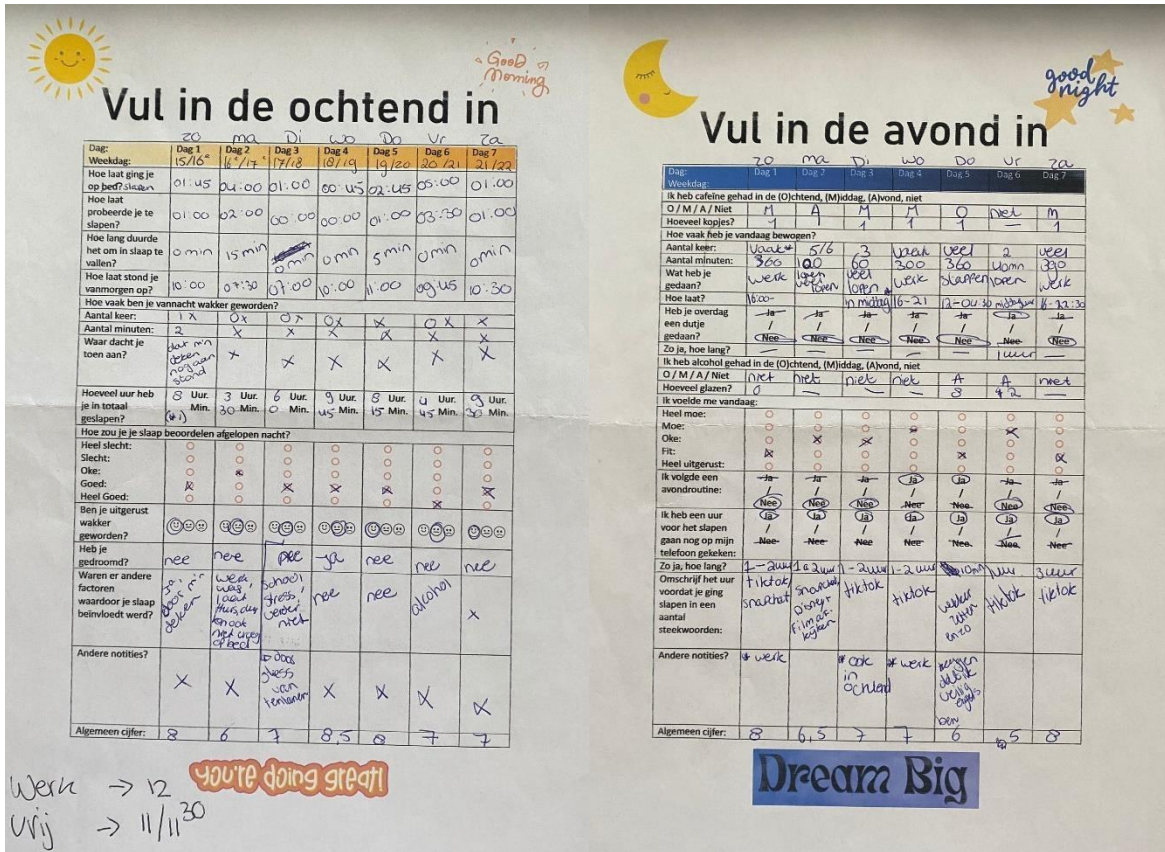 GooD
Morning
Vul in de ochtend in
zo ma Di wo Do Vr Za
Dag: Dag 1 Dag 2 Dag 3 Dag 4 Dag 5 Dag 6 Dag 7
Weekdag: 15/16 16/17 17/18 18/19 19/20 20/21 21/22
Hoe laat ging je op bed? slapen 01:45 04:00 01:00 00:45 02:45 05:00 01:00
Hoe laat probeerde je te slapen? 01:00 02:00 00:00 00:00 01:00 03:30 01:00
Hoe lang duurde het om in slaap te vallen? 0 min 15 min 0 min 0 min 5 min 0 min 0 min
Hoe laat stond je vanmorgen op? 10:00 07:30 07:00 10:00 11:00 09:45 10:30
Hoe vaak ben je vannacht wakker geworden?
Aantal keer: 1x 0x 0x 0x x 0x x
Aantal minuten: 2 x x x x x x
Waar dacht je toen aan? dat mijn deken nog aan stond x x x x x x
Hoeveel uur heb je in totaal geslapen? 8 Uur. Min. 3 Uur. 30 Min. 6 Uur. 0 Min. 9 Uur. 45 Min. 8 Uur. 15 Min. 4 Uur. 45 Min. 9 Uur. 30 Min.
Hoe zou je je slaap beoordelen afgelopen nacht?
Heel slecht:
Slecht:
Oke:
Goed:
Heel Goed:
Ben je uitgerust wakker geworden?
Heb je gedroomd? nee nee nee ja nee nee nee
Waren er andere factoren waardoor je slaap beïnvloedt werd? ja, door mijn deken werk laat thuis, dus ook niet vroeg op bed school stress, verder niet nee nee alcohol x
Andere notities? X X door stress van tentamen X X X X
Algemeen cijfer: 8 6 7 8,5 8 7 7
you're doing great!
Werk -> 12
Vrij -> 11/11 30
good night
Vul in de avond in
zo ma Di wo Do Vr za
Dag: Dag 1 Dag 2 Dag 3 Dag 4 Dag 5 Dag 6 Dag 7
Weekdag:
Ik heb cafeïne gehad in de (O)chtend, (M)iddag, (A)vond, niet
O / M / A / Niet M A M M O niet M
Hoeveel kopjes? 1 1 1 1 1 — 1
Hoe vaak heb je vandaag bewogen?
Aantal keer: Vaak* 5/6 3 vaak veel 2 veel
Aantal minuten: 360 100 60 300 360 40mn 390
Wat heb je gedaan? werk lopen veel lopen veel lopen * werk stappen lopen werk
Hoe laat? 16:00- in middag 16-21 12-04:30 middag 16-22:30
Heb je overdag een dutje gedaan? Ja / Nee Ja / Nee Ja / Nee Ja / Nee Ja / Nee Ja / Nee Ja / Nee
Zo ja, hoe lang? — — — — — 1 uur —
Ik heb alcohol gehad in de (O)chtend, (M)iddag, (A)vond, niet
O / M / A / Niet niet niet niet niet A A niet
Hoeveel glazen? 0 — — — 8 2 —
Ik voelde me vandaag:
Heel moe:
Moe:
Oke:
Fit:
Heel uitgerust:
Ik volgde een avondroutine: Ja / Nee Ja / Nee Ja / Nee Ja / Nee Ja / Nee Ja / Nee Ja / Nee
Ik heb een uur voor het slapen gaan nog op mijn telefoon gekeken: Ja / Nee Ja / Nee Ja / Nee Ja / Nee Ja / Nee Ja / Nee Ja / Nee
Zo ja, hoe lang? 1-2 uur 1 a 2 uur 1-2 uur 1-2 uur 1 uur 3 uur
Omschrijf het uur voordat je ging slapen in een aantal steekwoorden: tiktok, snapchat snapchat Disney+ film af kijken tiktok tiktok wekker zetten enzo tiktok tiktok
Andere notities? * werk * ook in ochtend * werk zorgen dat ik veilig ergens ben
Algemeen cijfer: 8 6,5 7 7 6 5 8
Dream Big